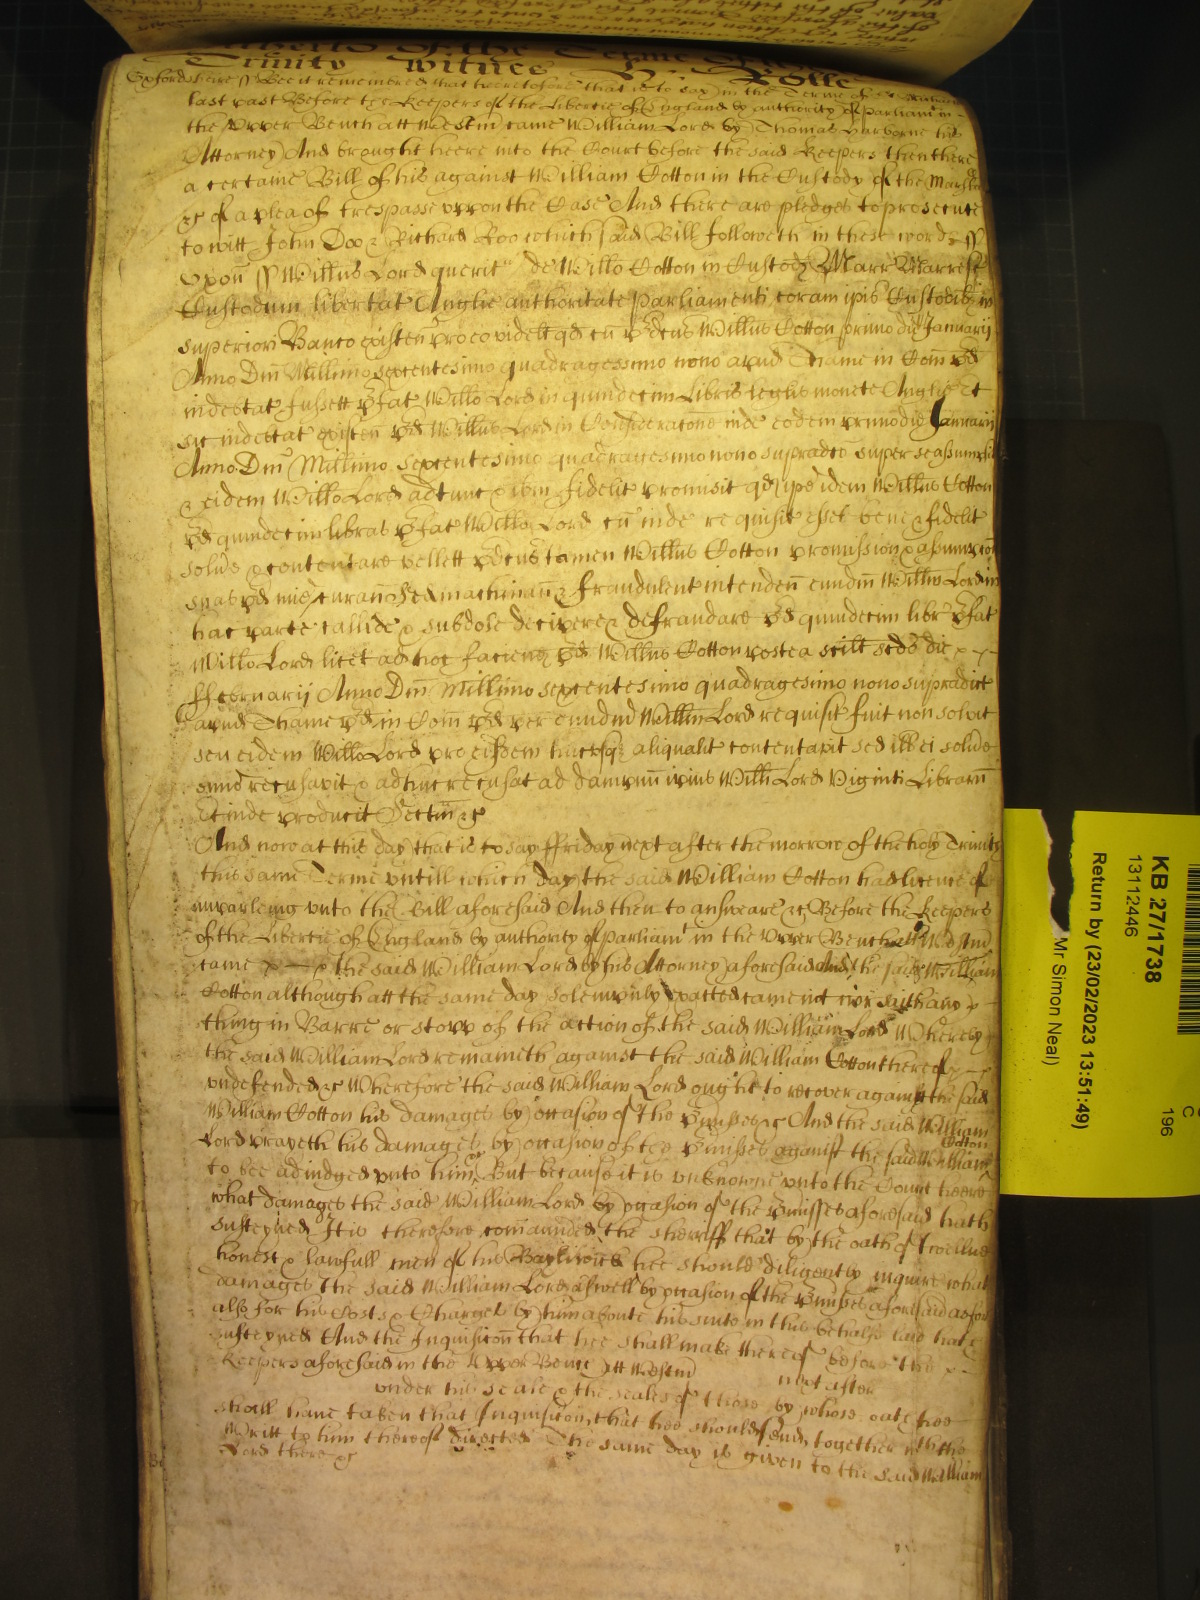 of the Terme of
Trinity Witnes H: Rolle
Oxfordsheire ss Bee it remembred that heeretofore that is to say in the Terme of
last past Before the Keepers of the Libertie of England by authority of Parliam in
the Upper Bench att Westm came William Lord by Thomas Harborne his
Attorney And brought heere into the Court before the said Keepers then there
a certaine Bill of his against William Cotton in the Custody of the Marshall
&c of a plea of trespasse uppon the Case And there are pledges to prosecute
to witt John Doo & Richard Roo which said Bill followeth in these words ss
Oxon ss Willus Lord querit de Willo Cotton in Custod Marr Marresc
Custodum libertat Anglie authoritate Parliamenti coram ipis Custodib in
superiori Banco existen pro eo videlt qd cu pdcus Willus Cotton primo die Januarij
Anno Dm Millimo sexcentesimo quadragessimo nono apud Thame in Com pd
indebitat fuissett pfat Willo Lord in quindecim Libris legalis monete Anglie Et
sic indebitat existen pd Willus Lord in Consideracone inde eodem primo die Januarij
Anno Dm Millimo sexcentesimo quadragesimo nono supradco super se assumpsit
& eidem Willo Lord adtunc & ibm fidelit promisit qd ipe idem Willus Cotton
pd quindecim libras pfat Willo Lord cu inde requisit esset bene & fidelit
solvere & contentare vellett pdcus tamen Willus Cotton promission & assumpcon
suas pd minime curan sed machinan & fraudulent intenden eundm Willm Lord in
hac parte callide & subdole decipere & defraudare pd quindecim libr pfat
Willo Lord licet ad hoc faciend pd Willus Cotton postea scilt scdo die
Februarij Anno Dm Millimo sexcentesimo quadragesimo nono supradict
apud Thame pd in Com pd per eundm Willm Lord requisit fuit non solvit
seu eidem Willo Lord pro eisdem hucusq aliqualit contentavit sed ill ei solvere
omnio recusavit & adhuc recusat ad dampnu ipius Willi Lord Viginti Libraru
Et inde producit Sectam &c
And now at this day that is to say Friday next after the morrow of the holy Trinity
this same Terme untill which day the said William Cotton had licence of
imparleing unto the Bill aforesaid And then to answeare &c Before the Keepers
of the Libertie of England by authority of Parliamt in the Upper Bench att Westm
came the said William Lord by his Attorney aforesaid And the said William
Cotton although att the same day solemnly exacted came not nor saith any
thing in Barre or stopp of the action of the said William Lord Whereby
the said William Lord remaineth against the said William Cotton thereof
undefended &c Wherefore the said William Lord ought to recover against the said
William Cotton his damages by occasion of the pmisses &c And the said William
Lord prayeth his damages by occasion of the pmisses against the said William Cotton
to bee adiudged unto him &c But because it is unknowne unto the Court heere
what damages the said William Lord by occasion of the pmisses aforesaid hath
susteyned It is therefore comaunded the sherriff that by the oath of twelve
honest & lawfull men of his Bayliwicke hee should diligently inquire what
damages the said William Lord aswell by occasion of the pmisses aforesaid as for
also for his Costs & Charges by him aboute his suite in this behalfe laid hath
susteyned And the Inquisicon that hee shall make thereof before the
Keepers aforesaid in the Upper Bench att Westm next after
under his seale & the seales of those by whose oath hee
shall have taken that Inquisicon that hee should send together with the
Writt to him thereof directed The same day is given to the said William
Lord there &c
KB 27/1738
13112446
Return by (23/02/2023 13:51:49)
Mr Simon Neal)
196
C